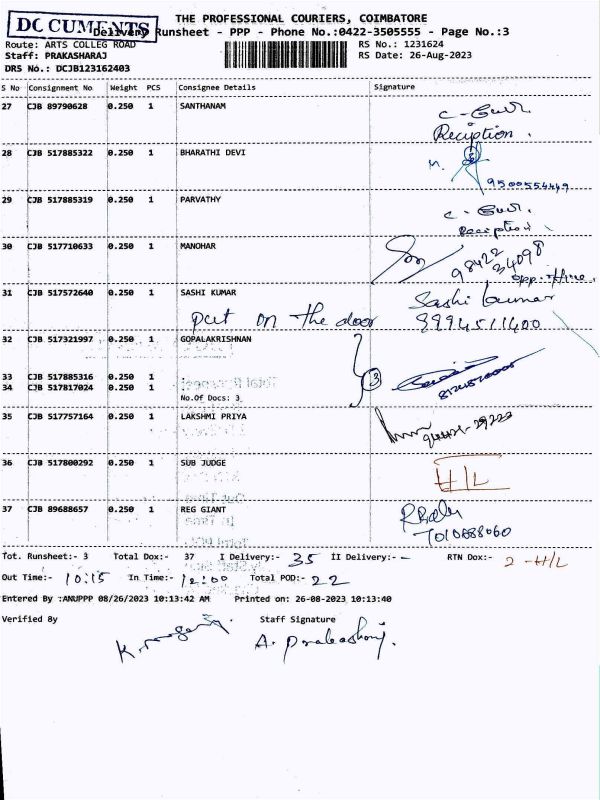 DOCUMENTS
THE PROFESSIONAL COURIERS, COIMBATORE
Delivery Runsheet - PPP - Phone No.:0422-3505555 - Page No.:3
Route: ARTS COLLEG ROAD RS No.: 1231624
Staff: PRAKASHARAJ RS Date: 26-Aug-2023
DRS No.: DCJB123162403
S No Consignment No Weight PCS Consignee Details Signature
27 CJB 89790628 0.250 1 SANTHANAM
Reciption.
28 CJB 517885322 0.250 1 BHARATHI DEVI
9500554449
29 CJB 517885319 0.250 1 PARVATHY
Reciption
30 CJB 517710633 0.250 1 MANOHAR
98422
34098
31 CJB 517572640 0.250 1 SASHI KUMAR Sashi kumar
put on the door 9994511400
32 CJB 517321997 0.250 1 GOPALAKRISHNAN
33 CJB 517885316 0.250 1 3
34 CJB 517817024 0.250 1
No.Of Docs: 3
35 CJB 517757164 0.250 1 LAKSHMI PRIYA
36 CJB 517800292 0.250 1 SUB JUDGE H/L
37 CJB 89688657 0.250 1 REG GIANT
7010888060
Tot. Runsheet:- 3 Total Dox:- 37 I Delivery:- 35 II Delivery:- - RTN Dox:- 2 - H/L
Out Time:- 10:15 In Time:- 12:00 Total POD:- 22
Entered By :ANUPPP 08/26/2023 10:13:42 AM Printed on: 26-08-2023 10:13:40
Verified By Staff Signature
A. Prakashraj.